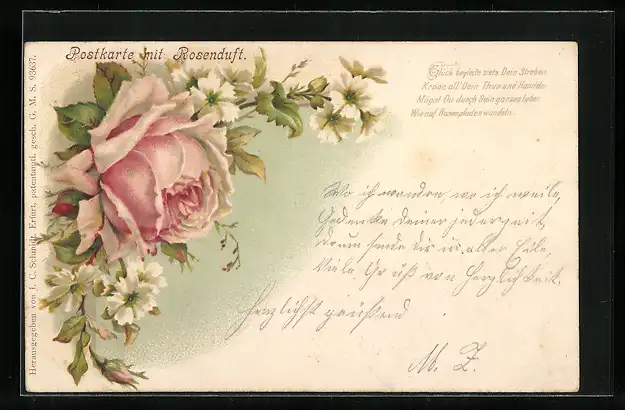 Postkarte mit Rosenduft.
Glück begleite stets Dein Streben
Kröne all' Dein Thun und Handeln
Mögst Du durch Dein ganzes Leben
Wie auf Rosenpfaden wandeln.
Wo ich wandre, wo ich weile,
Gedenke deiner jederzeit,
drum sende dir in aller Eile,
Viele Grüße von Herzlichkeit.
Herzlichst grüßend
M. Z.
Herausgegeben von J. C. Schmidt, Erfurt, patentamtl. gesch. G. M. S. 93637.